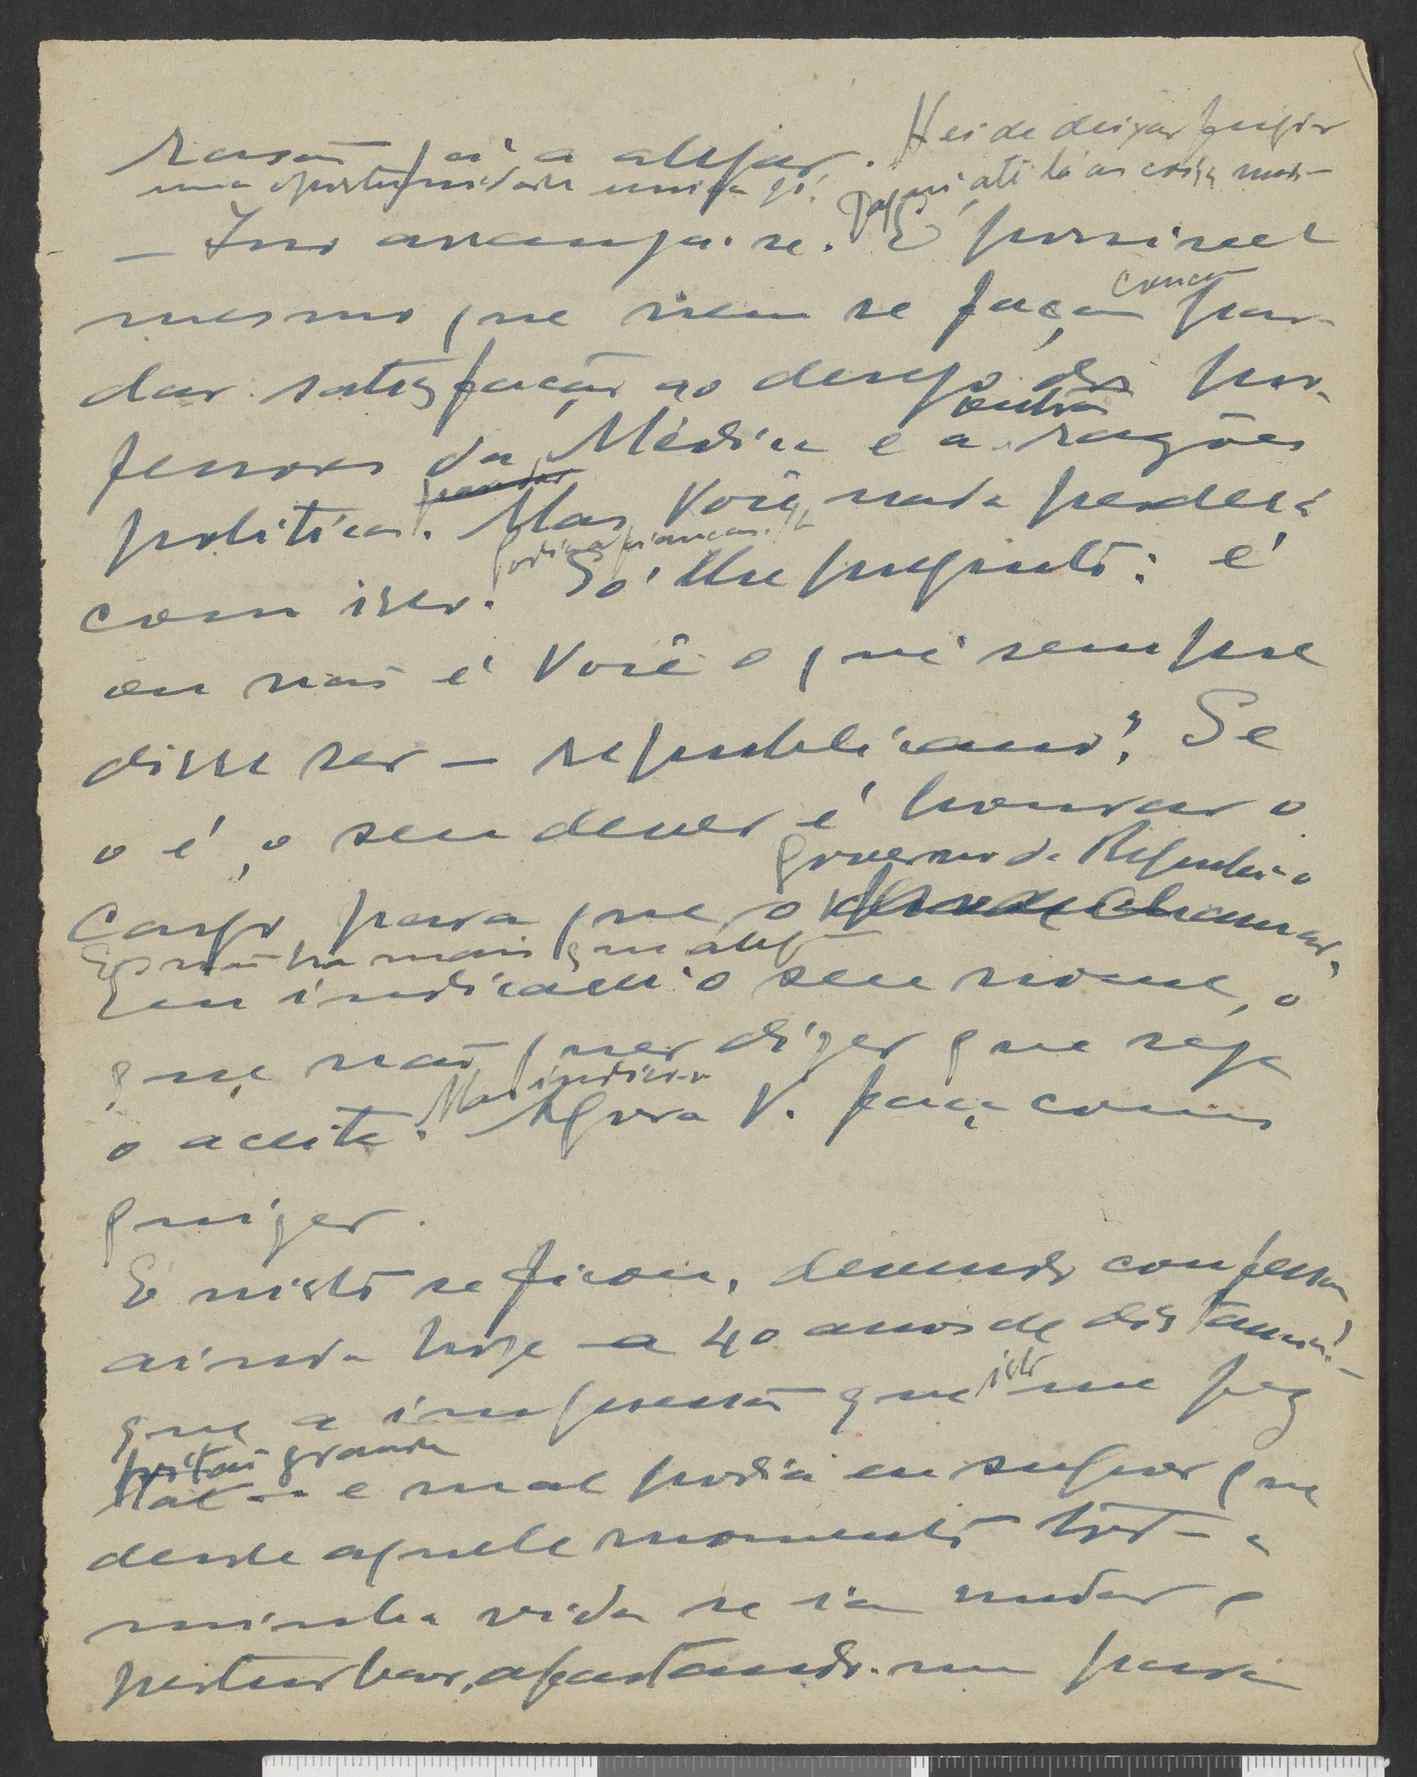 razão foi a alejar. Hei de deixar fugir
uma oportunidade unica só! Daqui até lá as coisas
— Isso arranja-se. E' possivel
mesmo que nem se faça
dar satisfação ao desejo dos pro-
fessores da Médica e a outras razões
politicas. Mas Você nada perderá
com isso. Só lhe pregunto: é
ou não é Você o que sempre
disse ser — republicano? Se
o é, o seu dever é honrar o
governo da Republica
cargo para que o
E não ha mais que
Eu indicarei o seu nome, o
que não quer dizer que seja
o aceite. Mas indico-o Agora V. faça como
quizer.
E nisto se ficou, devendo confessar
ainda hoje — a 40 anos de distancia! —
que a impressão que isto me fez
foi tão grande
e mal podia eu supor que
desde aquele momento toda a
minha vida se ia mudar e
perturbar, afastando-me para